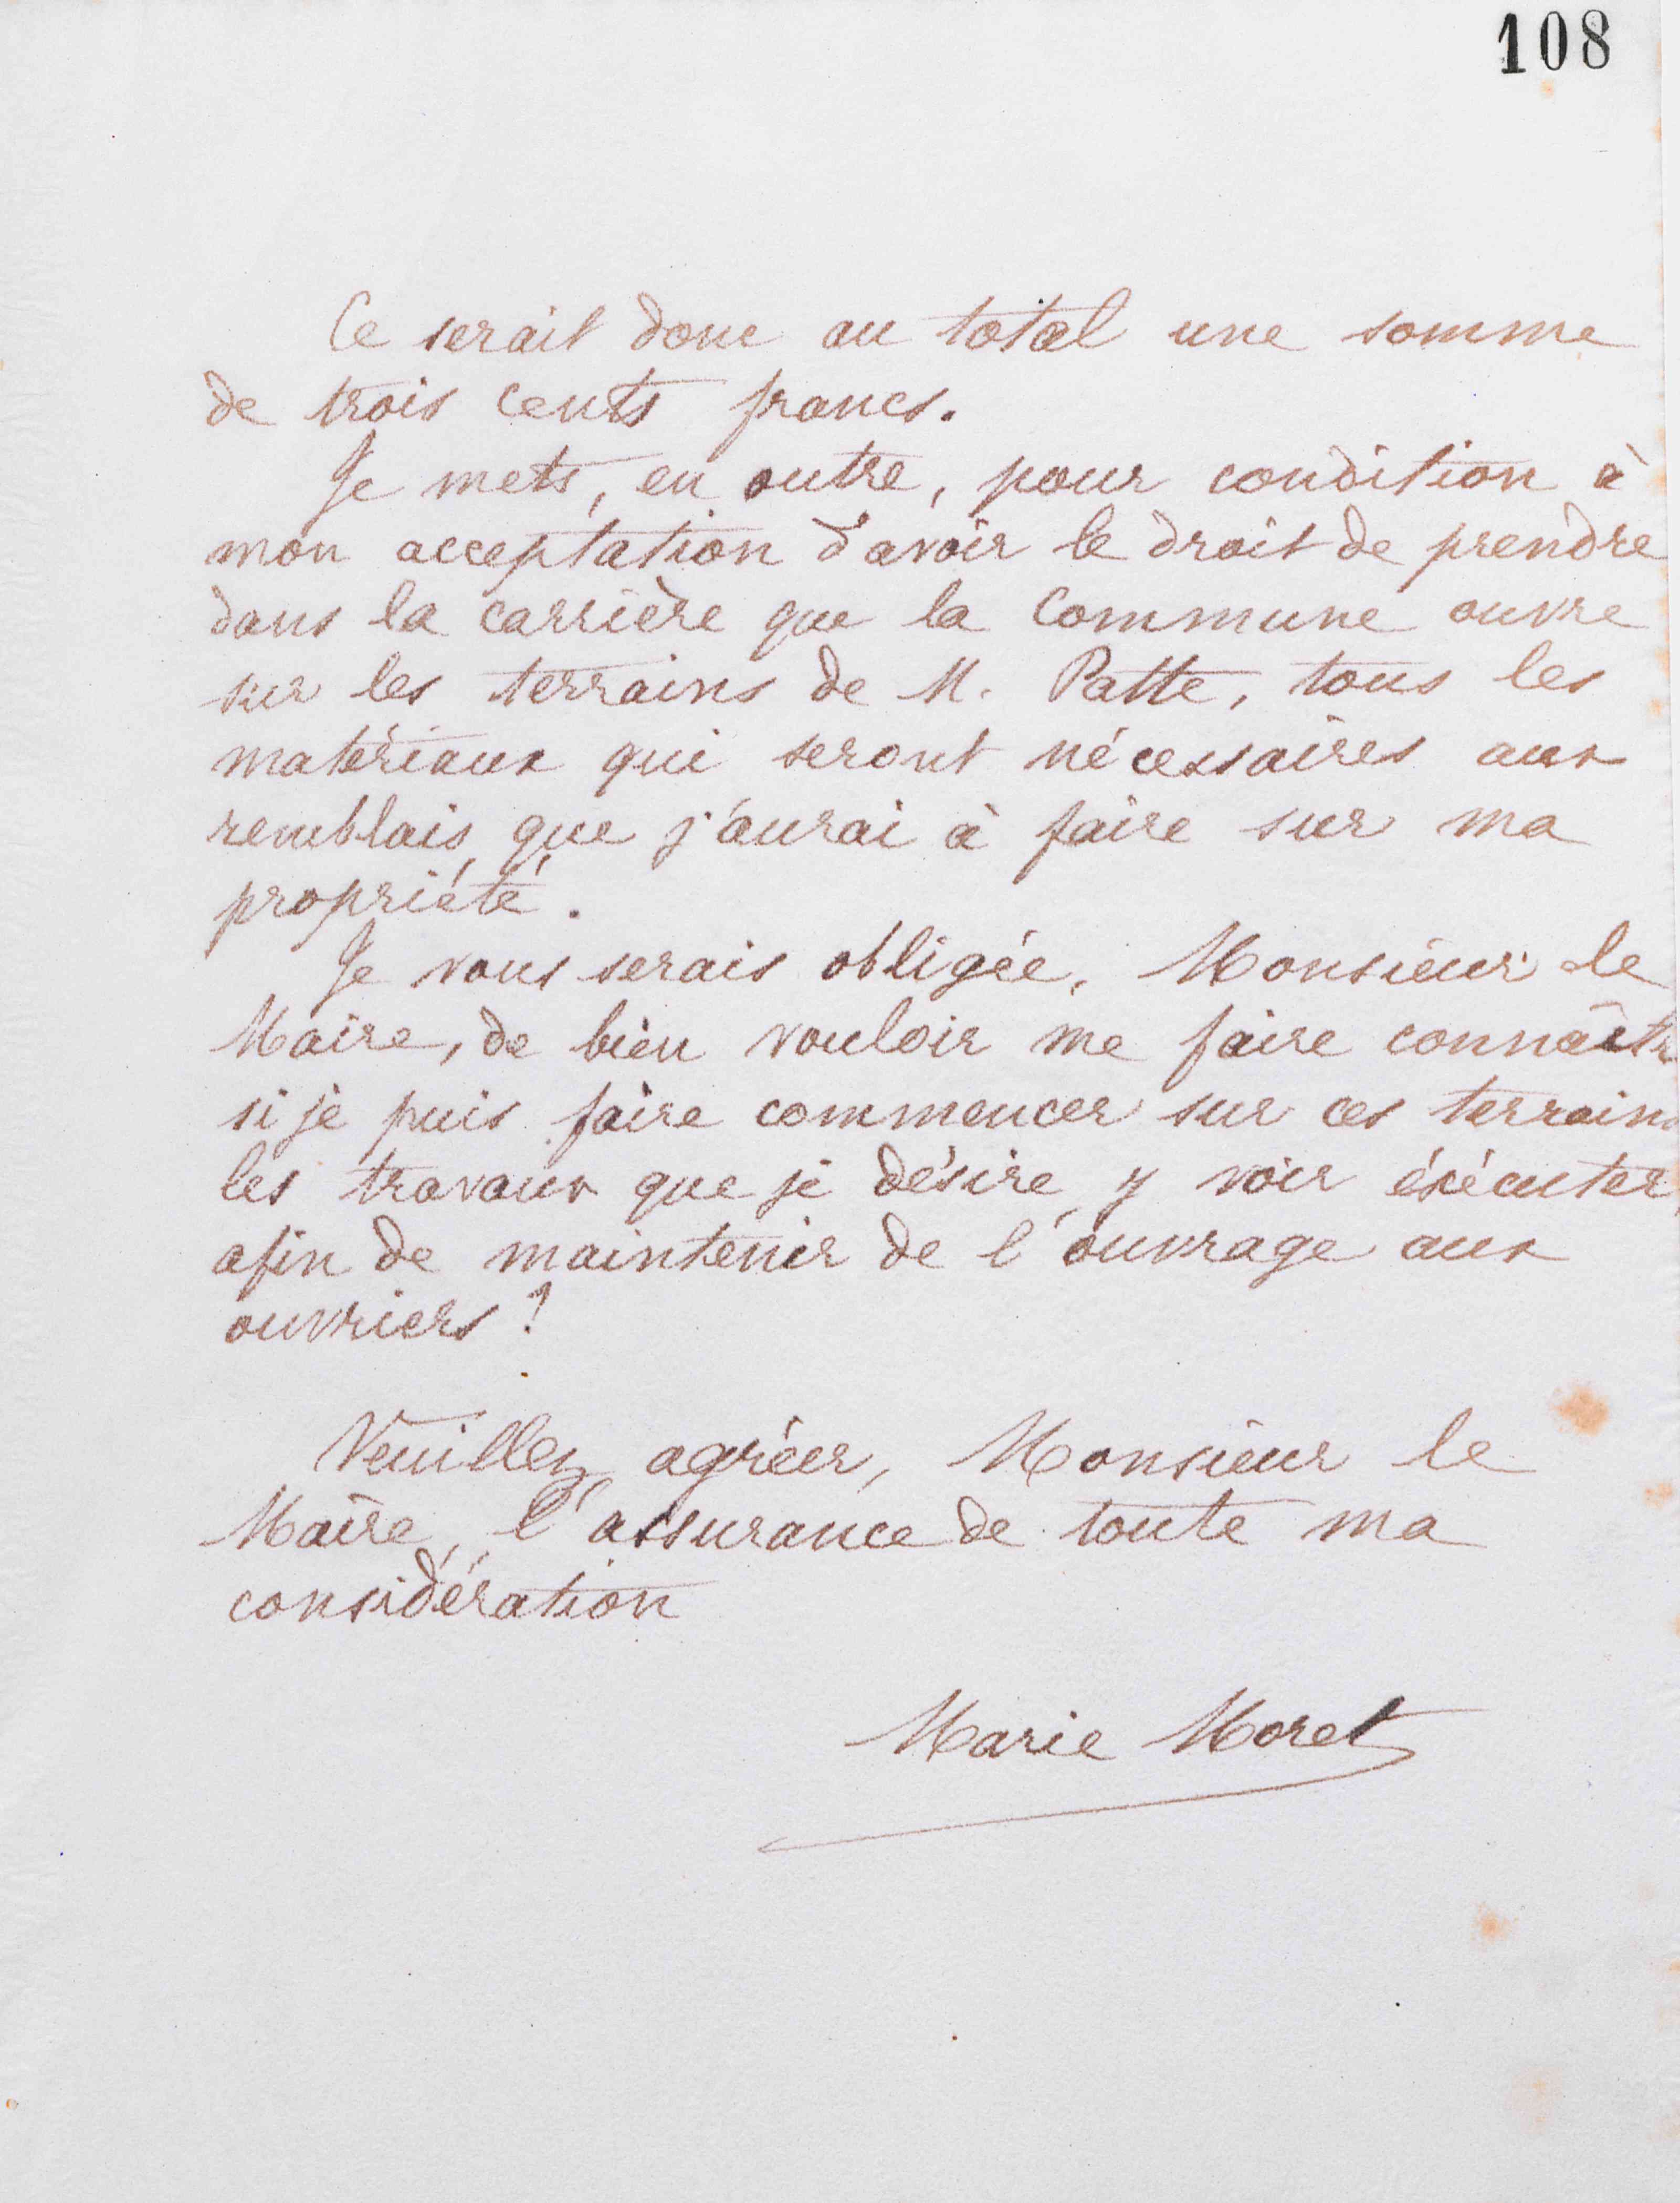 108
Ce serait donc au total une somme
de trois cents francs.
Je mets, en outre, pour condition à
mon acceptation d'avoir le droit de prendre
dans la carrière que la Commune ouvre
sur les terrains de M. Patte, tous les
matériaux qui seront nécessaires aux
remblais que j'aurai à faire sur ma
propriété.
Je vous serais obligée, Monsieur le
Maire, de bien vouloir me faire connaître
si je puis faire commencer sur ces terrains
les travaux que je désire y voir éxécuter,
afin de maintenir de l'ouvrage aux
ouvriers?
Veuillez agréer, Monsieur le
Maire, l'assurance de toute ma
considération
Marie Moret